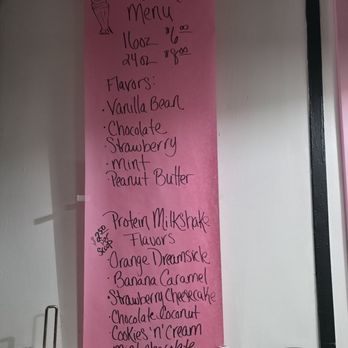 Menu
16oz $6.00
24oz $8.00
Flavors:
· Vanilla Bean
· Chocolate
· Strawberry
· mint
· Peanut Butter
Protein Milkshake
Flavors
$2.00
Scoop
· Orange Dreamsicle
· Banana Caramel
· Strawberry Cheesecake
· Chocolate Coconut
Cookies 'n' Cream